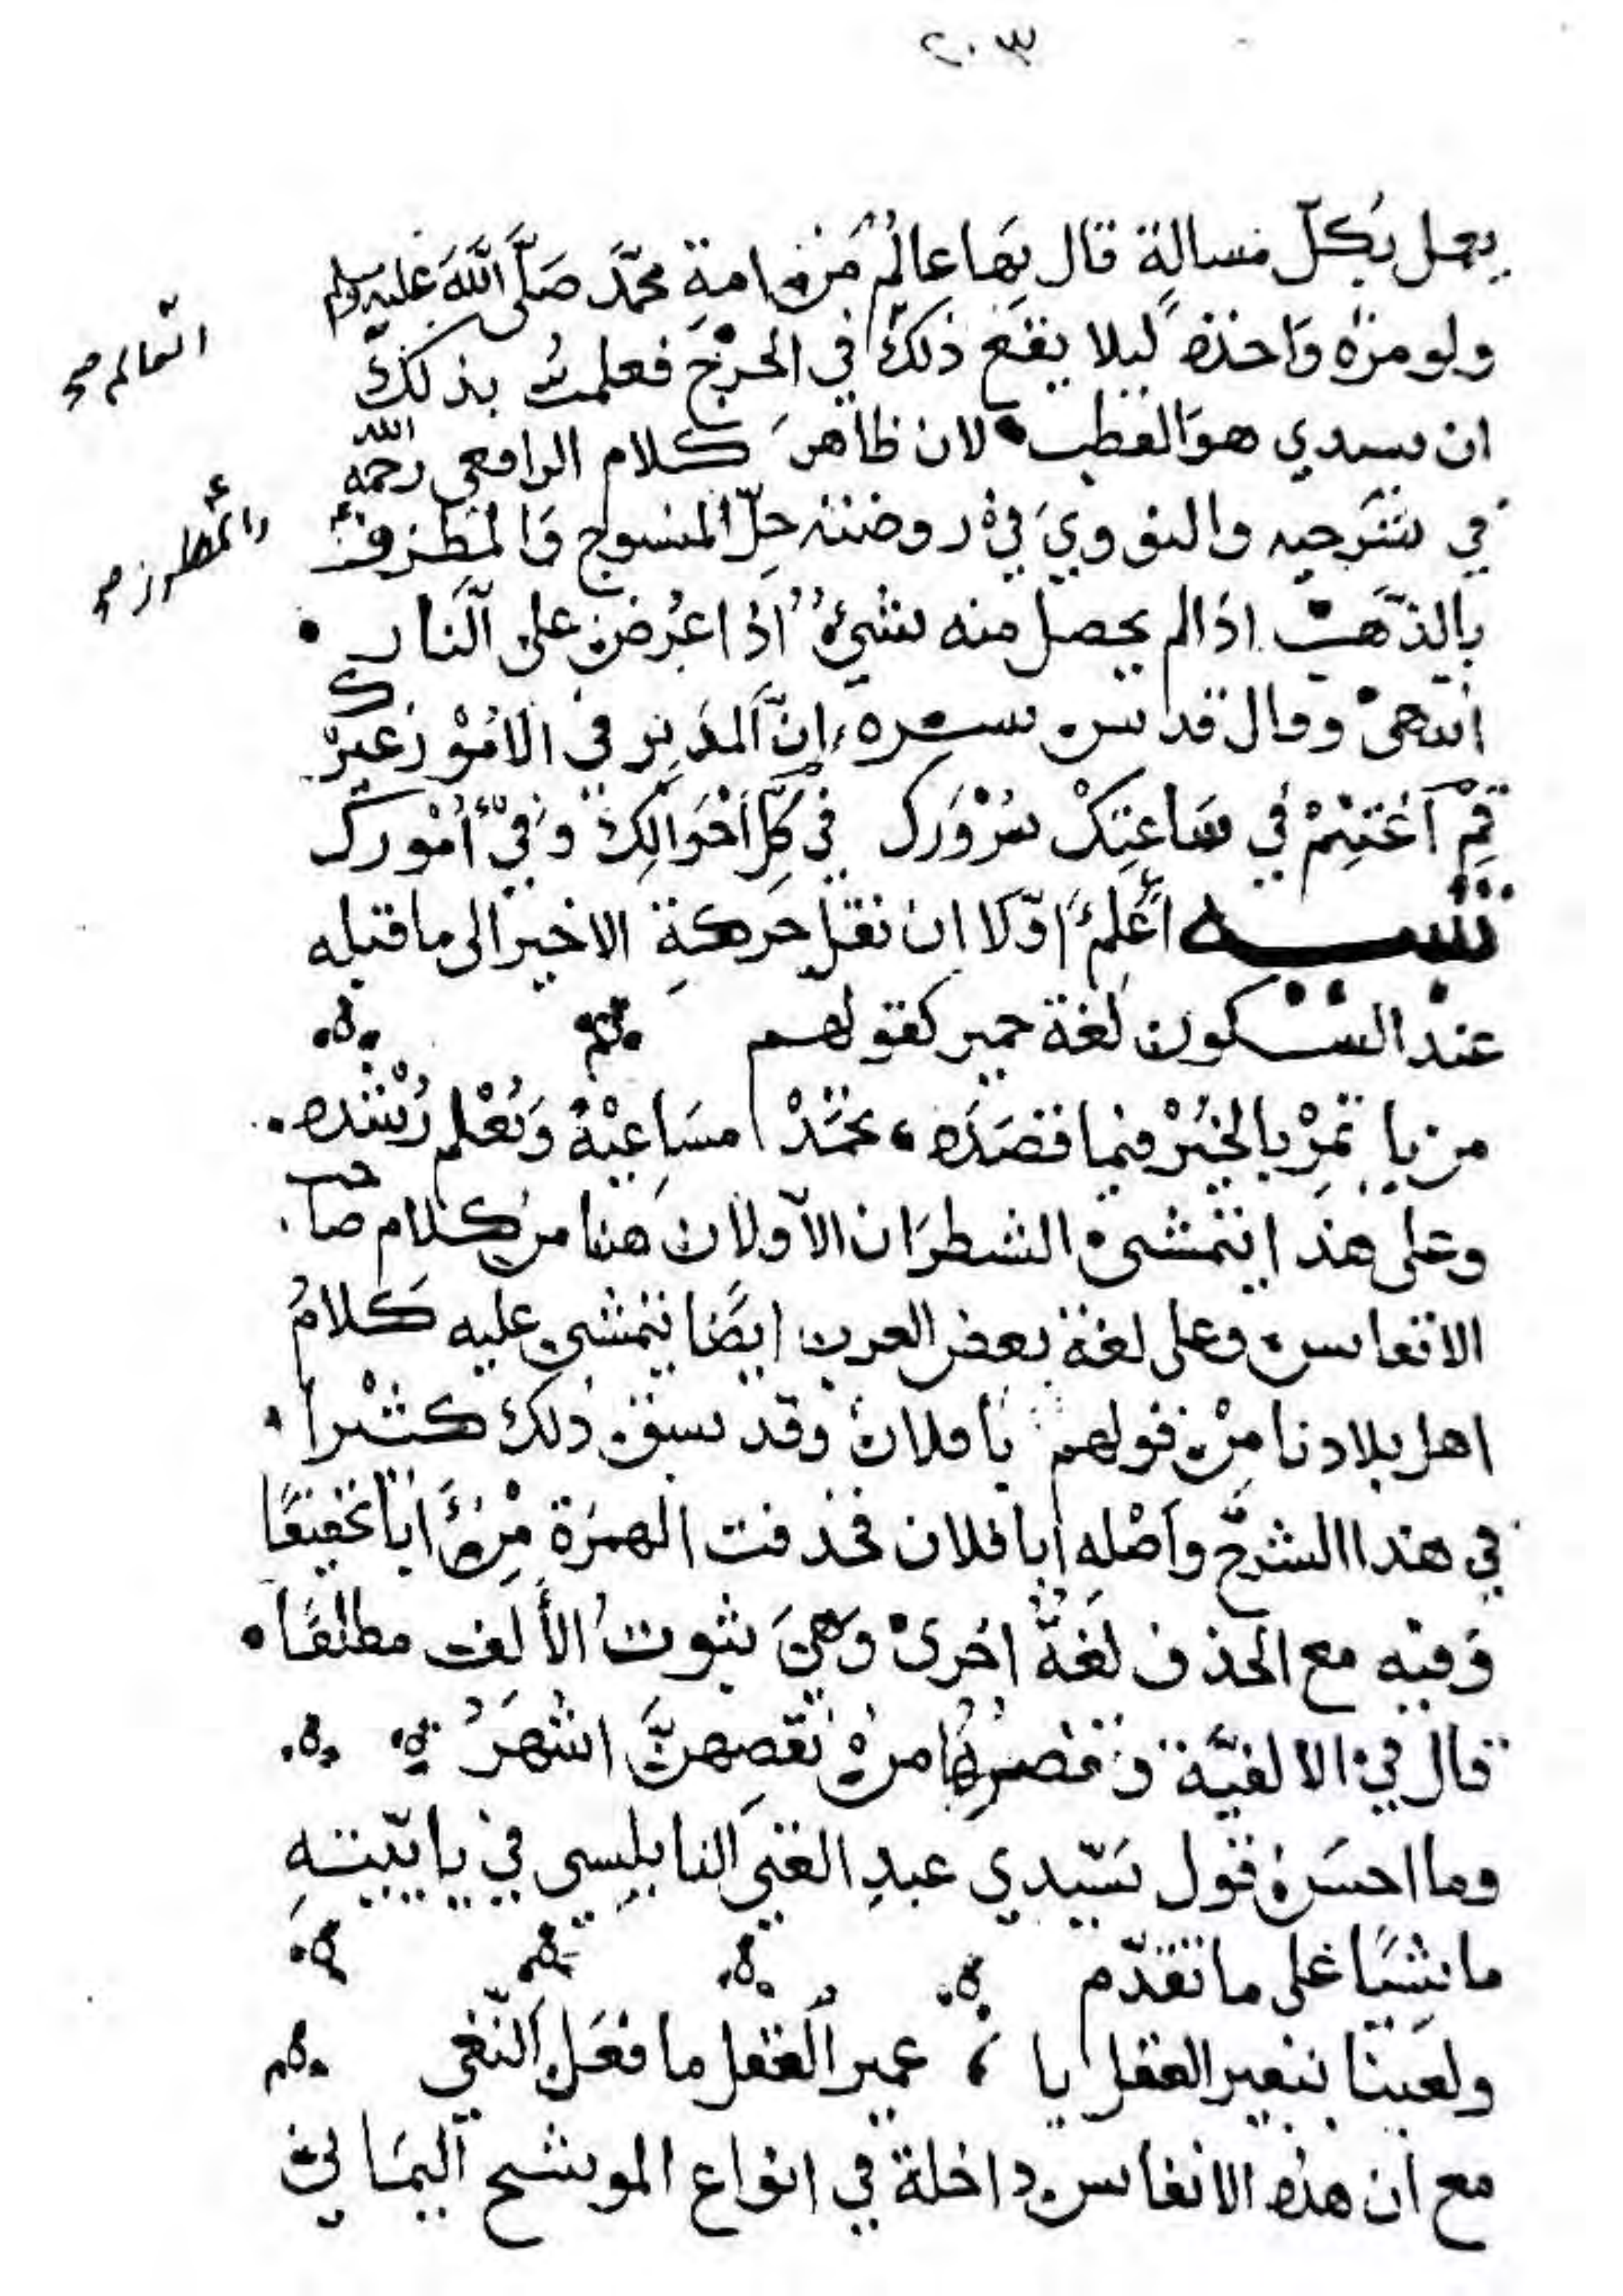 ٢٠٣
يعمل بكل مسالة قال بها عالم من امة محمد صلى الله عليه وسلم
ولو مرة واحدة ليلا يقع ذلك في الحرج فعلمت بذلك
العالم صح
ان سيدي هو القطب لان ظاهر كلام الرافعي رحمه الله
في شرحيه والنووي في روضته حل المنسوج والمطرف
والمطرز صح
بالذهب اذا لم يحصل منه شيء اذا عرض على النار
انتهى وقال قدس سره ان المدبر في الامور غيرك
قم اغتنم في ساعتك سرورك في كل احوالك وفي امورك
تنبيه اعلم اولا ان نقل حركة الاخير الى ما قبله
عند السكون لغة حمير كقولهم
من ياتمر بالخير فيما قصده تحمد مساعيه ويعلم رشده
وعلى هذا يتمشى الشطران الاولان هنا من كلام صاحب
الانفاس وعلى لغة بعض العرب ايضا يتمشى عليه كلام
اهل بلادنا من قولهم يا فلان وقد سبق ذلك كثيرا
في هذا الشرح واصله ابا فلان فحذفت الهمزة من ابا تخفيفا
وفيه مع الحذف لغة اخرى وهي ثبوت الألف مطلقا
قال في الالفية وقصرها من نقصهن اشهر
وما احسن قول سيدي عبد الغني النابلسي في يائيته
ماشيا على ما تقدم
ولعبنا بنغير العقل يا عمير العقل ما فعل النغي
مع ان هذه الانفاس داخلة في انواع الموشح اليماني